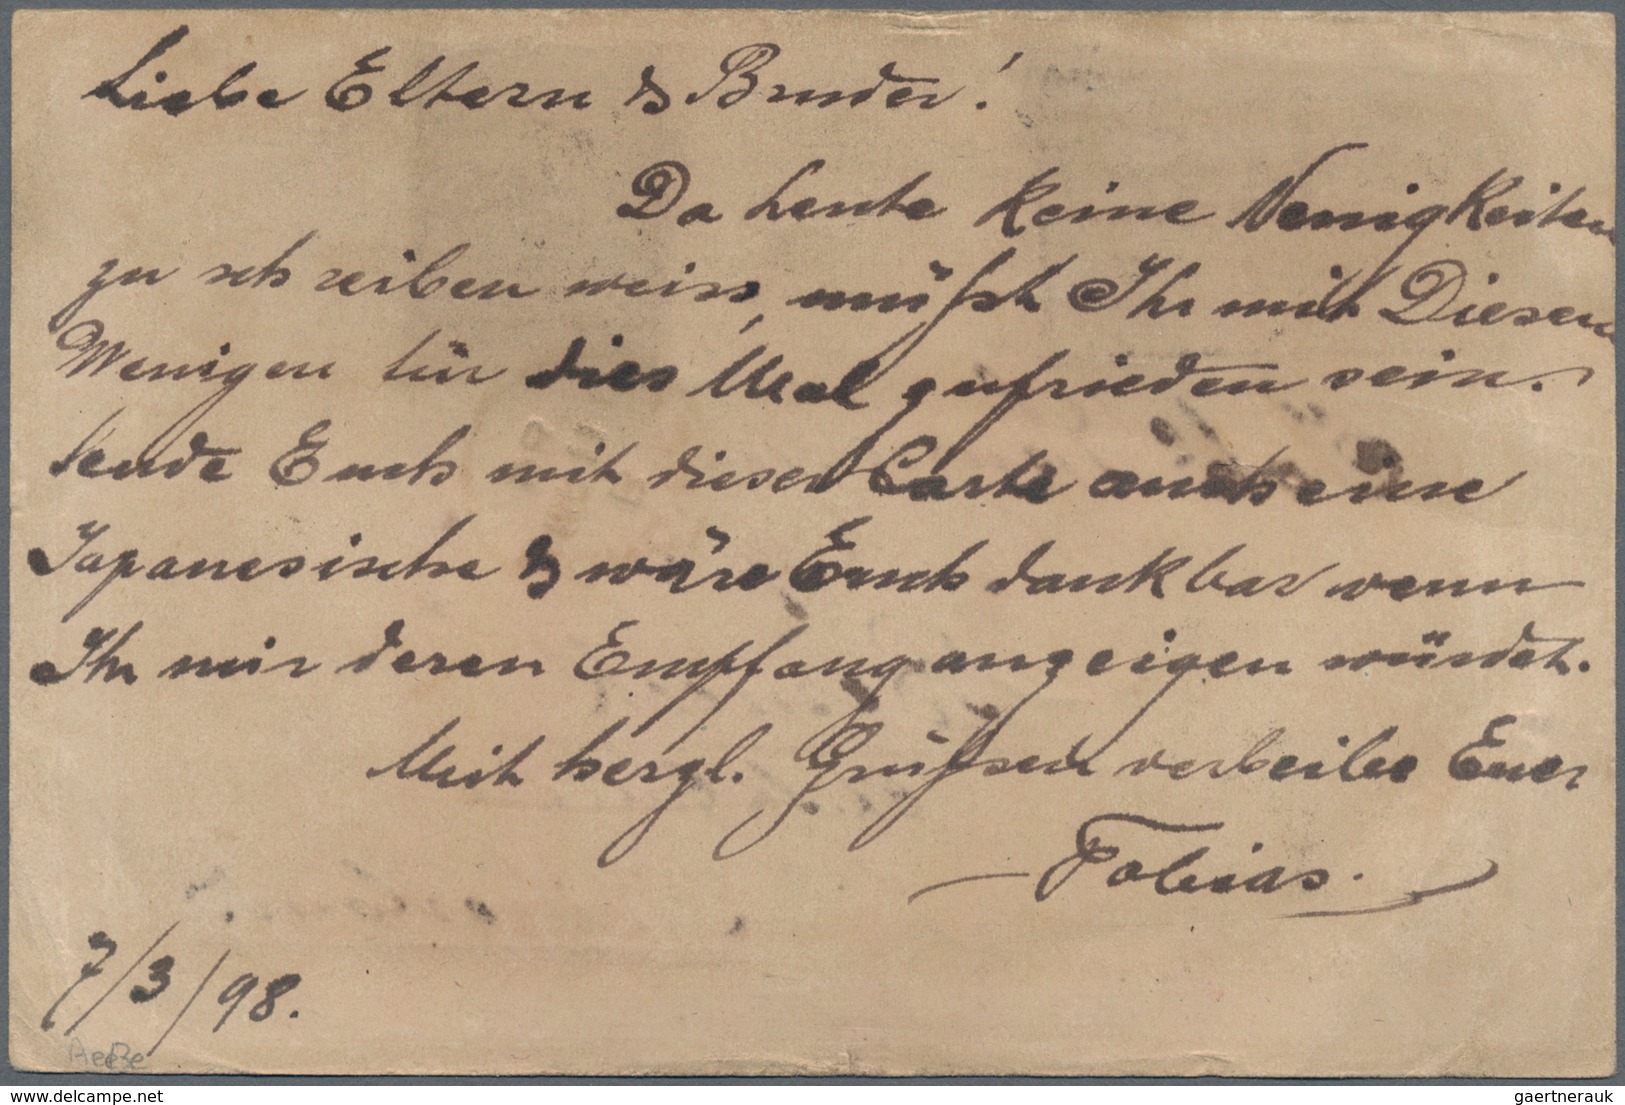 Liebe Eltern & Bruder!
Da heute keine Neuigkeiten
zu schreiben weiss, müßt Ihr mit Diesen
Wenigen für dies Mal zufrieden sein.
Sende Euch mit dieser Carte auch eine
Japanesische & wäre Euch dankbar wenn
Ihr mir deren Empfang anzeigen würdet.
Mit herzl. Grüßen verbeibe Euer
Tobias.
7/3/98.
delcampe.net
gaertnerauk